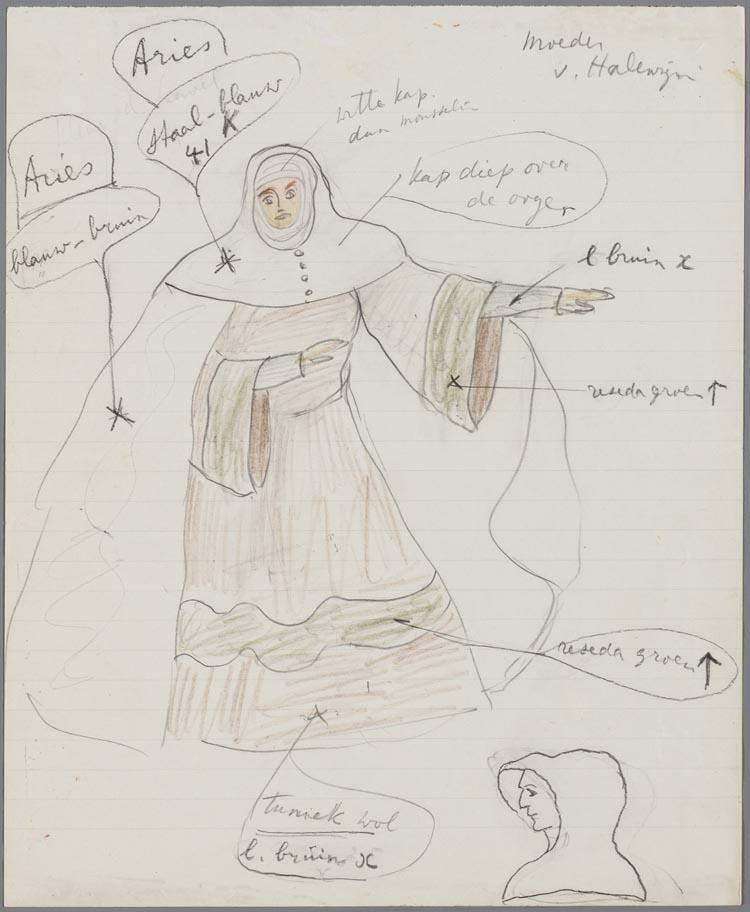 Moeder
v. Halewijn
Aries
Staal-blauw
41
Aries
blauw-bruin
witte kap
dun mousselin
kap diep over
de ogen
l bruin x
reseda groen ↑
reseda groen ↑
tuniek wol
l. bruin x